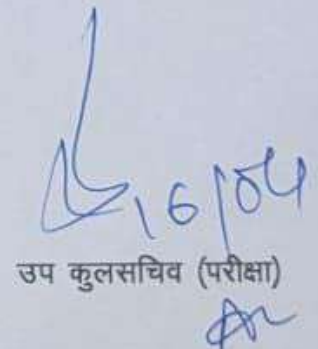 16/04
उप कुलसचिव (परीक्षा)